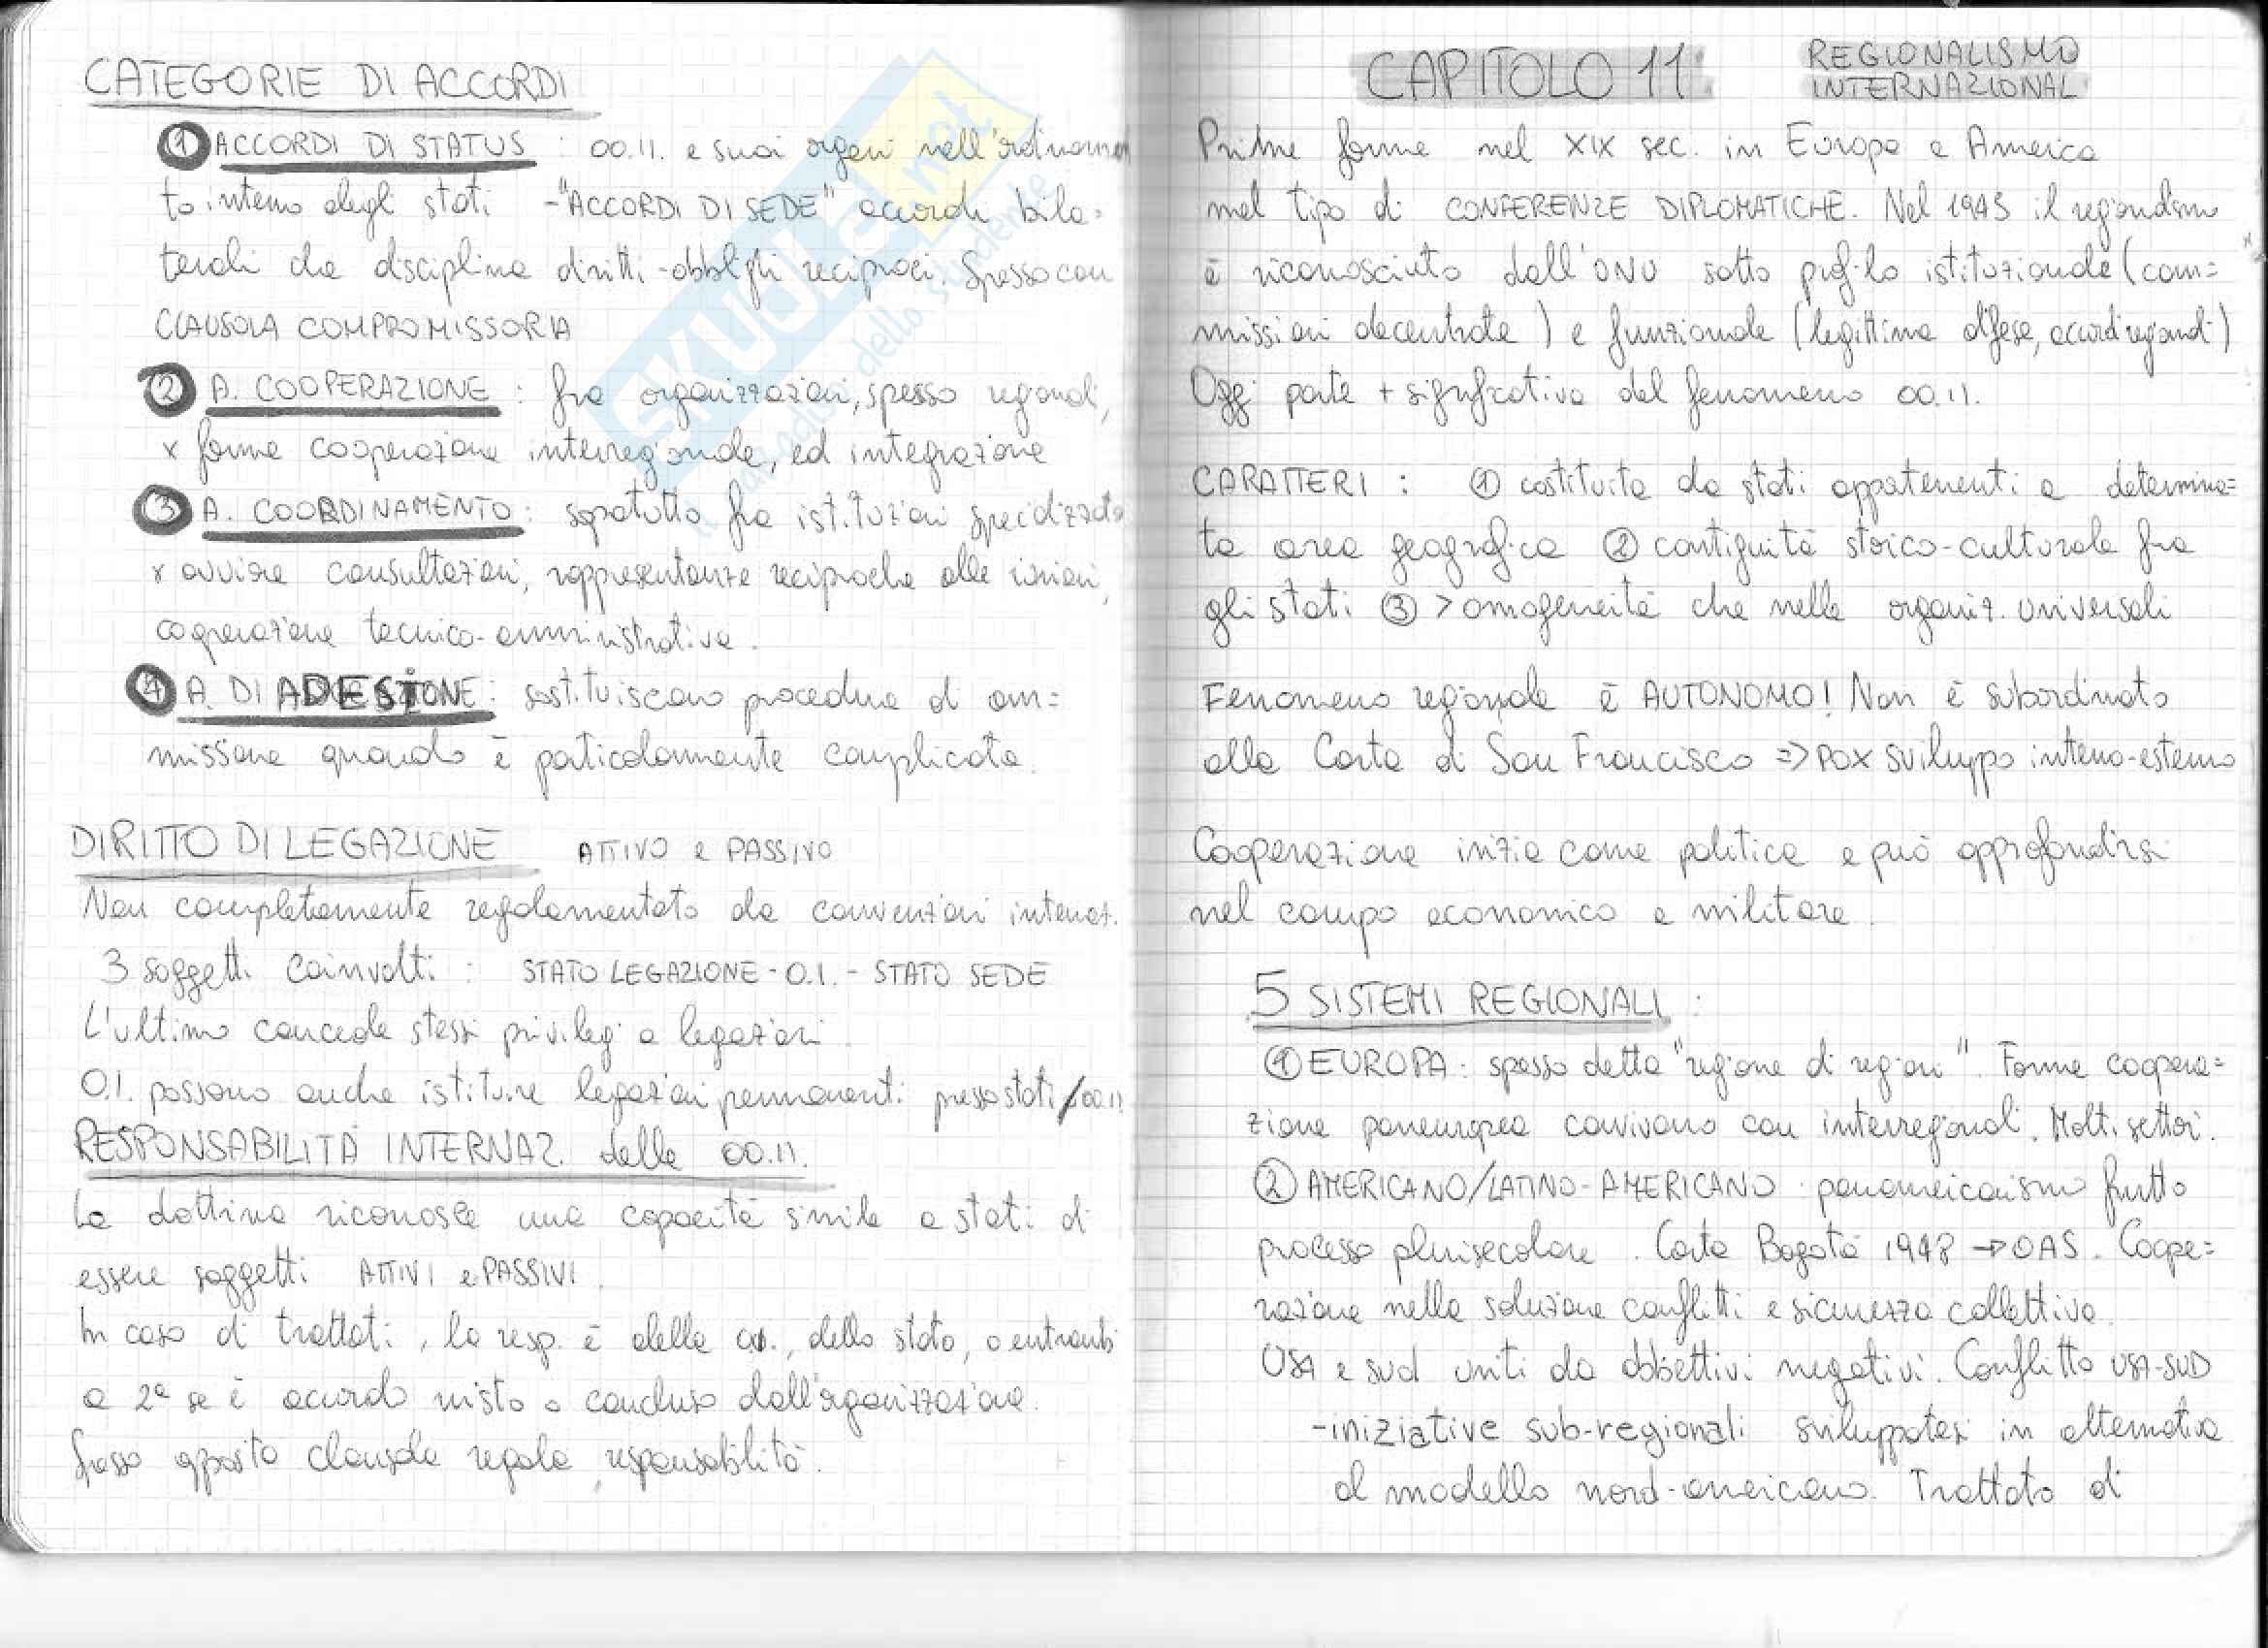 CATEGORIE DI ACCORDI
① ACCORDI DI STATUS : OO.II. e suoi organi nell'ordinamen
to interno degli stati -"ACCORDI DI SEDE" accordi bila=
terali che disciplina diritti-obblighi reciproci. Spesso con
CLAUSOLA COMPROMISSORIA
② A. COOPERAZIONE : fra organizzazioni, spesso regionali,
x forme cooperazione interregionale, ed integrazione
③ A. COORDINAMENTO : sopratutto fra istituzioni specializzate
x avviare consultazioni, rappresentanze reciproche alle riunioni,
cooperazione tecnico-amministrativa.
④ A. DI ADESIONE : sostituiscono procedura di am=
missione quando è particolarmente complicata.
DIRITTO DI LEGAZIONE ATTIVO e PASSIVO
Non completamente regolamentato da convenzioni internaz.
3 soggetti coinvolti : STATO LEGAZIONE - O.I. - STATO SEDE
L'ultimo concede stessi privilegi a legazioni.
O.I. possono anche istituire legazioni permanenti presso stati/OO.II
RESPONSABILITÀ INTERNAZ. delle OO.II.
La dottrina riconosce una capacità simile a stati di
essere soggetti ATTIVI e PASSIVI.
In caso di trattati, la resp. è della, dello stato, o entrambi
a 2ª se è accordo misto o concluso dall'organizzazione.
Spesso apposita clausola regola responsabilità.
CAPITOLO 11: REGIONALISMO
INTERNAZIONAL
Prime forme nel XIX sec. in Europa e America
nel tipo di CONFERENZE DIPLOMATICHE. Nel 1945 il regionalismo
è riconosciuto dall'ONU sotto profilo istituzionale (com=
missioni decentrate) e funzionale (legittima difesa, accordi regionali)
Oggi parte + significativa del fenomeno OO.II.
CARATTERI : ① costituita da stati appartenenti a determina=
ta area geografica ② contiguità storico-culturale fra
gli stati ③ > omogeneità che nelle organiz. universali
Fenomeno regionale è AUTONOMO! Non è subordinato
alla Carta di San Francisco => POX sviluppo interno-esterno
Cooperazione inizia come politica e può approfondirsi
nel campo economico e militare.
5 SISTEMI REGIONALI :
① EUROPA : spesso detta "regione di regioni". Forme coopera=
zione paneuropea convivono con interregionali. Molti settori.
② AMERICANO/LATINO-AMERICANO : panamericanismo frutto
processo plurisecolare. Carta Bogotà 1948 → OAS. Coope=
razione nella soluzione conflitti e sicurezza collettiva.
USA e sud uniti da obbiettivi negativi. Conflitto USA-SUD
-iniziative sub-regionali sviluppatesi in alternativa
al modello nord-americano. Trattato di
SKUOLA.net
il paradiso dello studente